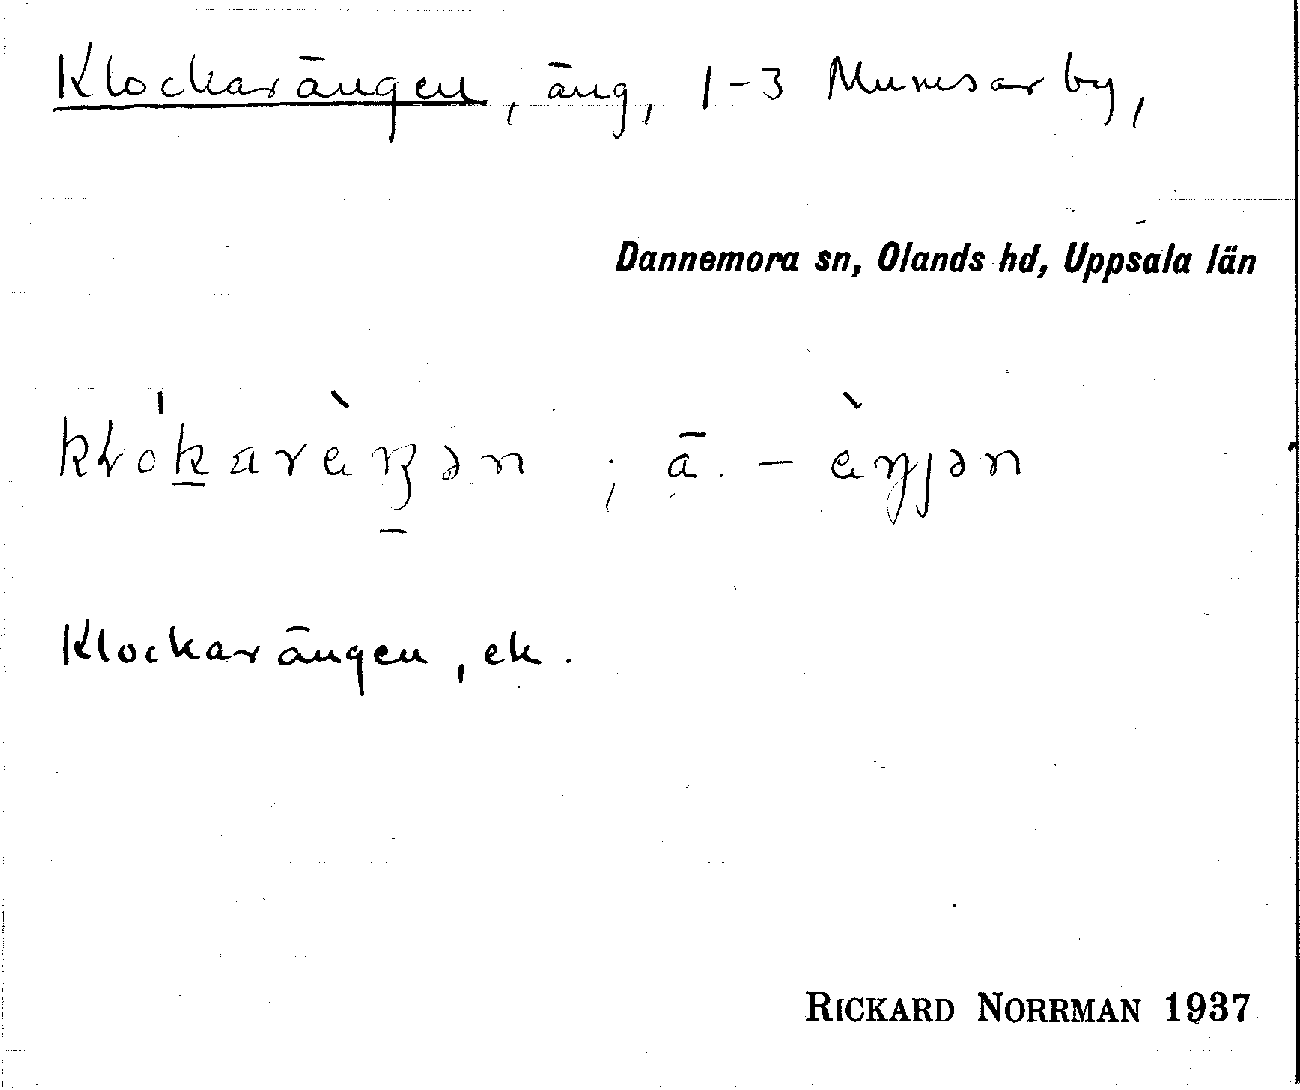 Klockarängen, äng, 1-3 Mumsarby,
Dannemora sn, Olands hd, Uppsala län
; ä. –
Klockarängen, ek.
RICKARD NORRMAN 1937